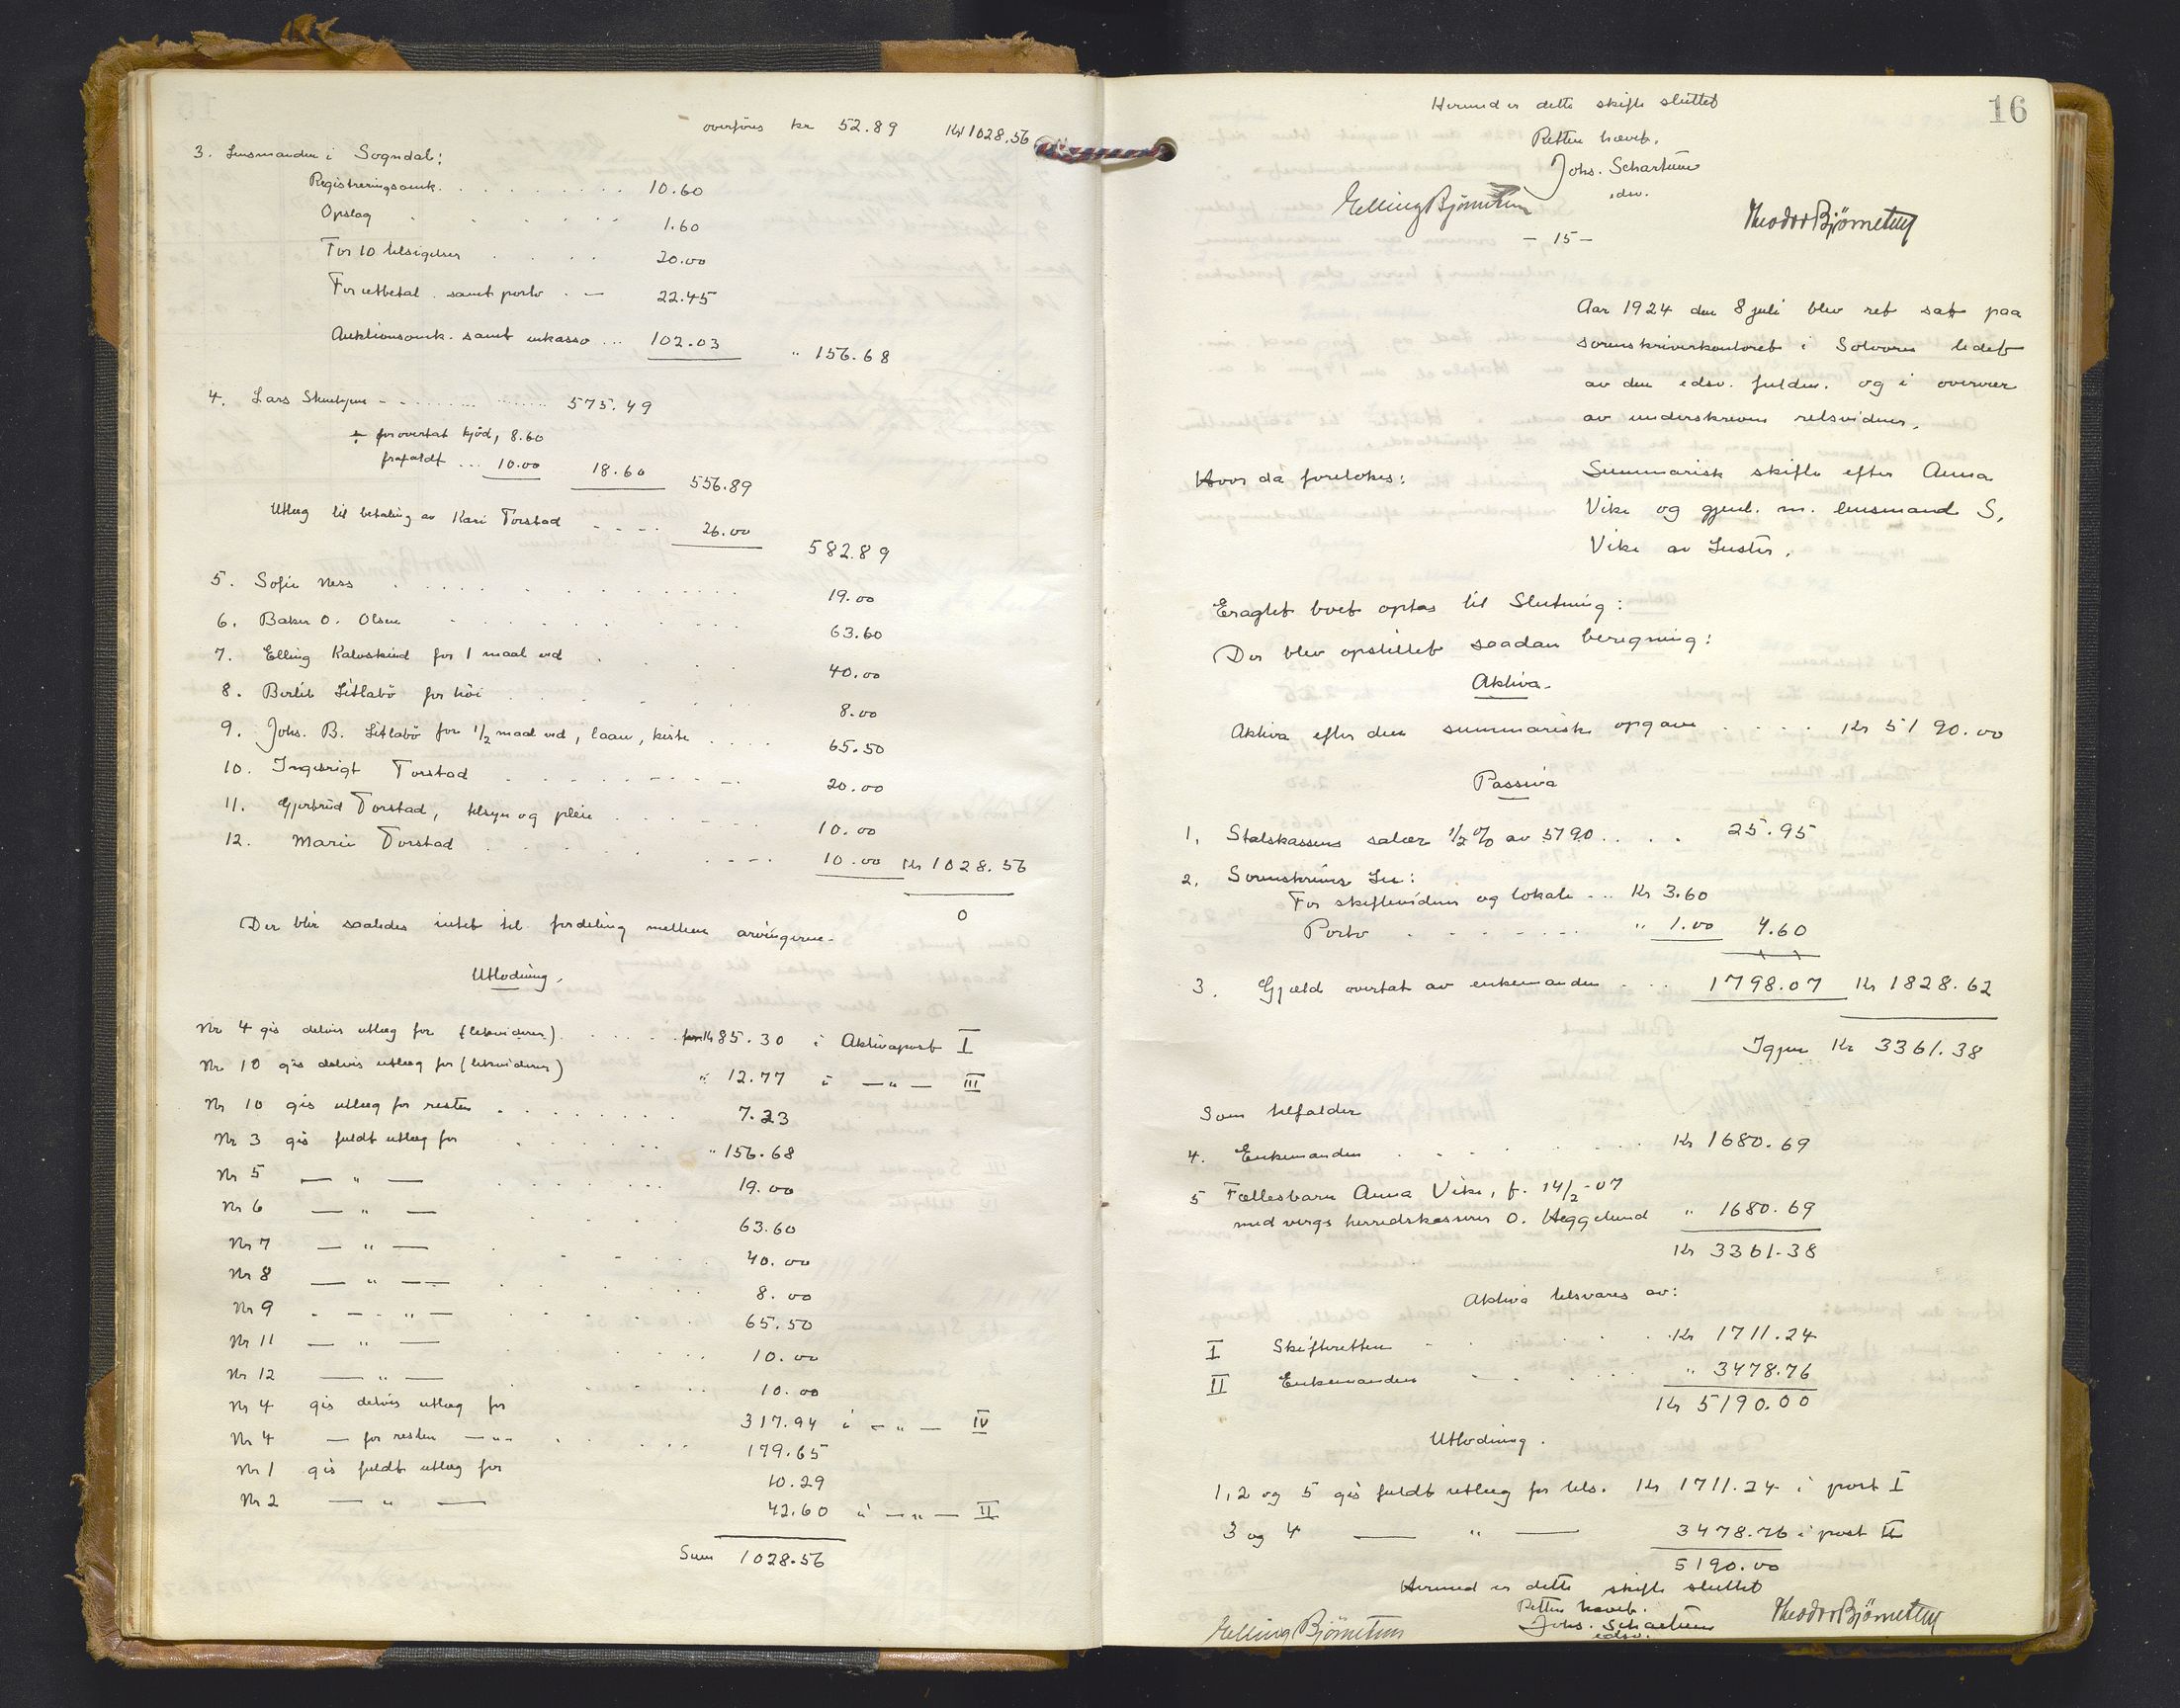 overføres kr 52.89 Kr 1028.56
3. Lensmanden i Sogndal:
Registreringsomk. . . . . . . . . 10.60
Opslag . . . . . . . 1.60
For 10 tilsigelser . . . . 20.00
For utbetal. samt porto . — 22.45
Auktionsomk. samt inkasso ... 102.03 " 156.68
4. Lars - - . . . . . . 575.49
÷ for overtat kjöd, 8.60
frafaldt ... 10.00 18.60 556.89
Utlæg til betaling av Kari Torstad - - - - 26.00 582.89
5. Sofie Ness . . . . . . . . . . 19.00
6. Baker O. Olsen . . . . . . . . 63.60
7. Elling Kalvskind for 1 maal ved . . . 40.00
8. Berlit Litlabö for höi . . . . . 8.00
9. Johs. B. Litlabö for 1/2 maal ved, laan, kiste . . . . 65.50
10. Ingebrigt Torstad . . . . . . - - - . 20.00
11. Gjertrud Torstad, tilsyn og pleie . . . . . . 10.00
12. Marie Torstad . . . . . . - - - . 10.00 Kr 1028.56
0
Der blir saaledes intet til fordeling mellem arvingerne.
Utlodning.
Nr 4 gis delvis utlæg for (likviderer) . . . . . for Kr 85.30 i Aktivapost I
Nr 10 gis delvis utlæg for (likviderer) " 12.77 i — " — III
Nr 10 gis utlæg for resten . . . . . . . 7.23
Nr 3 gis fuldt utlæg for . . . . . . " 156.68
Nr 5 — " — . . . . . . 19.00
Nr 6 — " — . . 63.60
Nr 7 — " — . . . . 40.00
Nr 8 — " — — . . . . . 8.00
Nr 9 . - - . " — . . . . . 65.50
Nr 11 — " — . . . . . 10.00
Nr 12 — " — . . . . . 10.00
Nr 4 gis delvis utlæg for 317.94 i — " — IV
Nr 4 — for resten — " — . . . . 179.65
Nr 1 gis fuldt utlæg for 10.29
Nr 2 — " — 42.60 i — " — II
Sum 1028.56
16
Hermed er dette skifte sluttet
Retten hævet.
Johs. Schartum
edsv.
Elling Bjørnetun Theodor Bjørnetun
- 15 -
Aar 1924 den 8 juli blev ret sat paa
sorenskriverkontoret i Solvorn ledet
av den edsv. fuldm. og i overvær
av underskrevne retsvidner.
Hvor da foretokes: Summarisk skifte efter Anna
Vike og gjenl. m. lensmand S.
Vike av Luster.
Eragtet boet optas til Slutning:
Der blev opstillet saadan beregning:
Aktiva.
Aktiva efter den summariske opgave . . . . . Kr 5190.00
Passiva
1. Statskassens salær 1/2 % av 5190 . . . . 25.95
2. Sorenskriver Lie:
For skiftevidner og lokale ... Kr 3.60
Porto . . . . - - - - " 1.00 4.60
3. Gjæld overtat av enkemanden . . . 1798.07 Kr 1828.62
Igjen Kr 3361.38
Som tilfalder
4. Enkemanden . . . . . . . . . Kr 1680.69
5 Fællesbarn Anna Vike, f. 14/2-07
med verge herredskasserer O. Heggelund " 1680.69
Kr 3361.38
Aktiva tilsvares av:
I Skifteretten - . . . . . . Kr 1711.24
II Enkemanden - . . . . . " 3478.76
Kr 5190.00
Utlodning.
1, 2 og 5 gis fuldt utlæg for tils. Kr 1711.24 i post I
3 og 4 — " — 3478.76 i post II
5190.00
Hermed er dette skifte sluttet
Retten hævet.
Johs. Schartum
edsv.
Elling Bjørnetun Theodor Bjørnetun